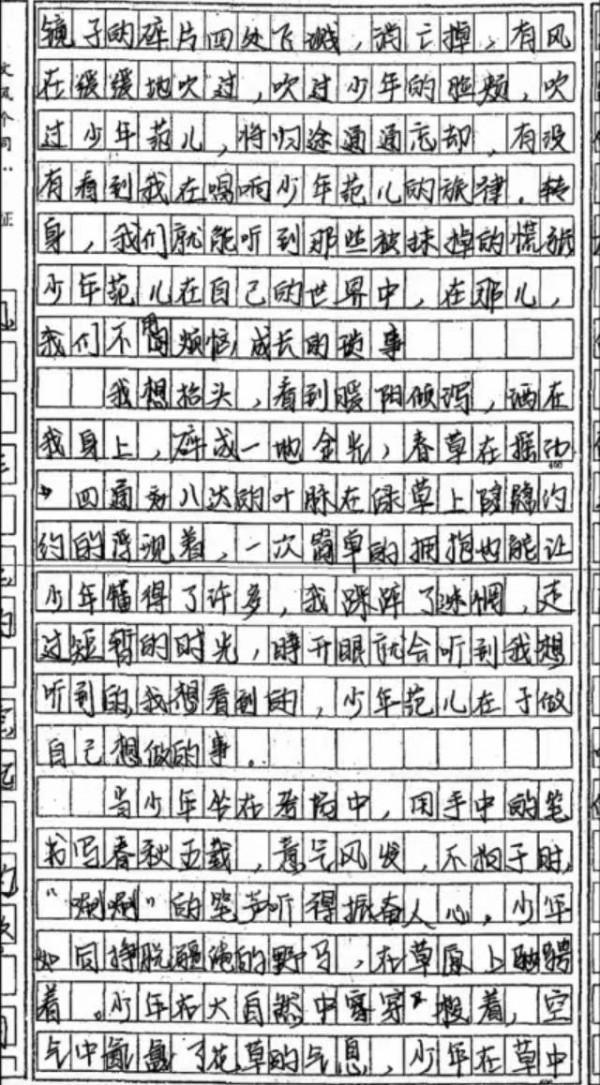 镜子的碎片四处飞溅,消亡掉,有风
在缓缓地吹过,吹过少年的脸颊,吹
过少年范儿,将归途通通忘却,有没
有看到我在唱响少年范儿的旋律.转
身,我们就能听到那些被抹掉的慌张
少年范儿在自己的世界中,在那儿,
我们不用烦恼成长的琐事
我想抬头,看到暖阳倾泻,洒在
我身上,碎成一地金光,春草在摇动
,四通八达的叶脉在绿草上隐隐约
约的浮现着,一次简单的拥抱也能让
少年懂得了许多,我踩碎了迷惘,走
过短暂的时光,睁开眼就会听到我想
听到的,我想看到的,少年范儿在于做
自己想做的事.
当少年坐在考场中,用手中的笔
书写春秋五载,意气风发,不拘于时,
“唰唰”的笔声听得振奋人心,少年
如同挣脱缰绳的野马,在草原上驰骋
着.少年在大自然中穿梭着,空
气中充盈了花草的气息,少年在草中